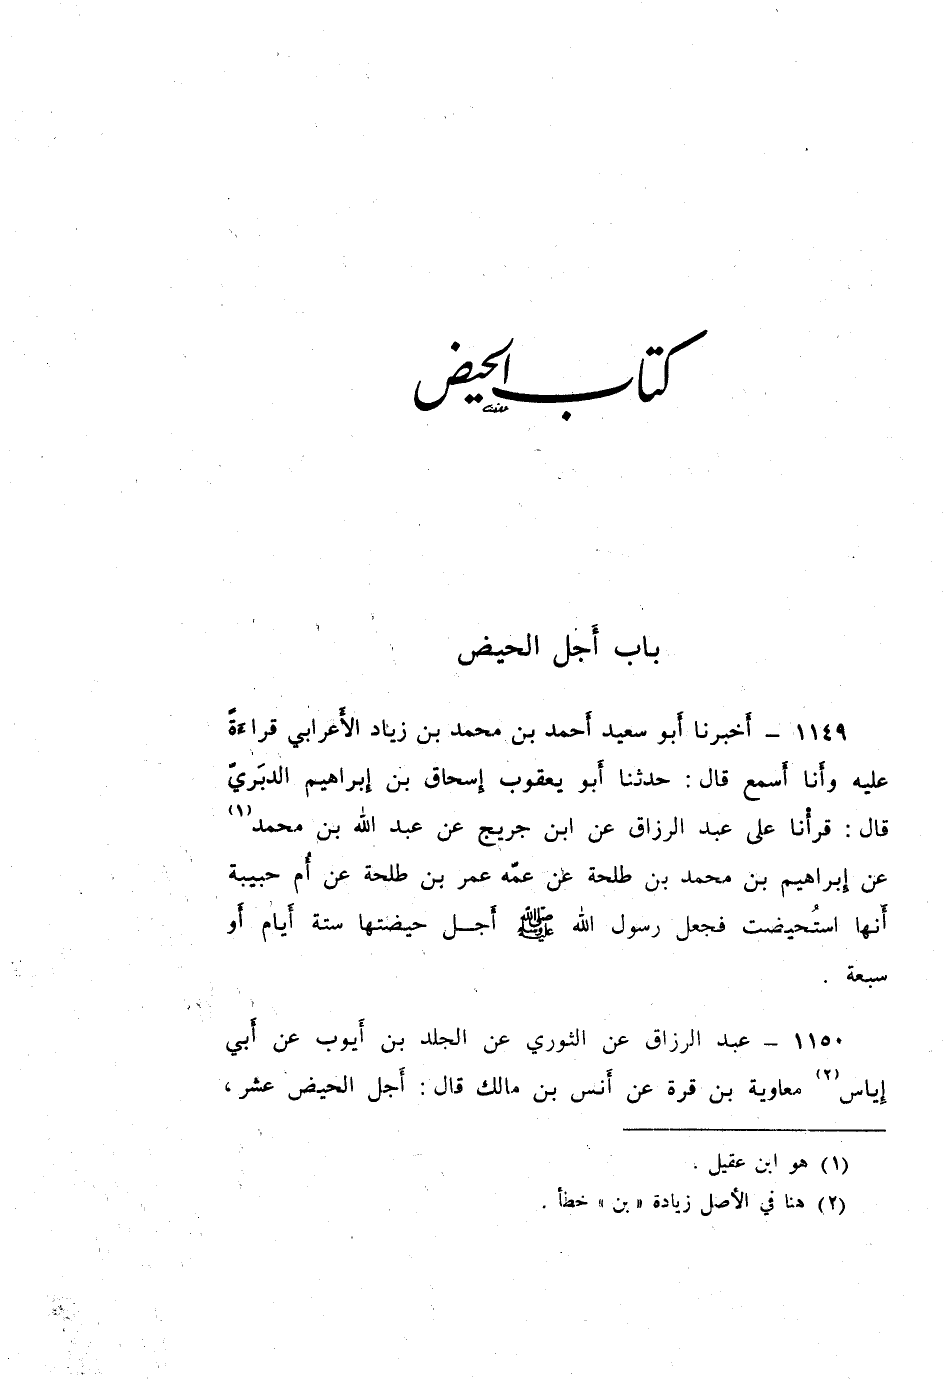 كتاب الحيض
باب أَجل الحيض
١١٤٩ – أَخبرنا أَبو سعيد أَحمد بن محمد بن زياد الأَعرابي قراءةً
عليه وأَنا أَسمع قال : حدثنا أَبو يعقوب إسحاق بن إبراهيم الدبَريّ
قال : قرأْنا على عبد الرزاق عن ابن جريج عن عبد الله بن محمد(١)
عن إبراهيم بن محمد بن طلحة عن عمّه عمر بن طلحة عن أُم حبيبة
أَنها استُحيضت فجعل رسول الله ﷺ أَجل حيضتها ستة أَيام أَو
سبعة .
١١٥٠ – عبد الرزاق عن الثوري عن الجلد بن أَيوب عن أَبي
إياس(٢) معاوية بن قرة عن أَنس بن مالك قال : أَجل الحيض عشر ،
(١) هو ابن عقيل .
(٢) هنا في الأصل زيادة « بن » خطأ .